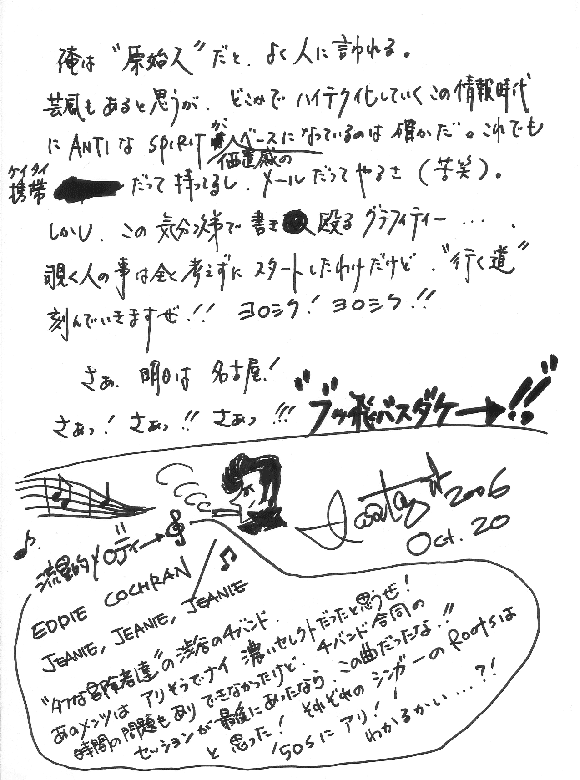 俺は“原始人”だと、よく人に言われる。
芸風もあると思うが、どこかでハイテク化していくこの情報時代
にANTIなSPIRITが価値感のベースになっているのは確かだ。これでも
携帯ケイタイだって持ってるし、メールだってやるさ(苦笑)。
しかし、この気分次第で書き殴るグラフィティー……
覗く人の事は全く考えずにスタートしたわけだけど、“行く道”
刻んでいきますぜ!! ヨロシク! ヨロシク!!
さぁ、明日は名古屋!
さぁっ! さぁっ!! さぁっ!!! “ブッ飛バスダケ→!!”
2006
Oct. 20
流星的メロディー→
EDDIE COCHRAN
JEANIE, JEANIE, JEANIE
“タフな冒険者達”の渋谷の4バンド、
あのメンツはアリそうでナイ濃いセレクトだったと思うぜ!
時間の問題もありできなかったけど、4バンド合同の
セッションが最後にあったなら、この曲だったな!!
と思った! それぞれのシンガーのRootsは
'50sにアリ! わかるかい…?!